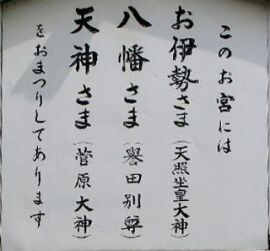 このお宮には
お伊勢さま(天照坐皇大神)
八幡さま(誉田別尊)
天神さま(菅原大神)
をおまつりしてあります